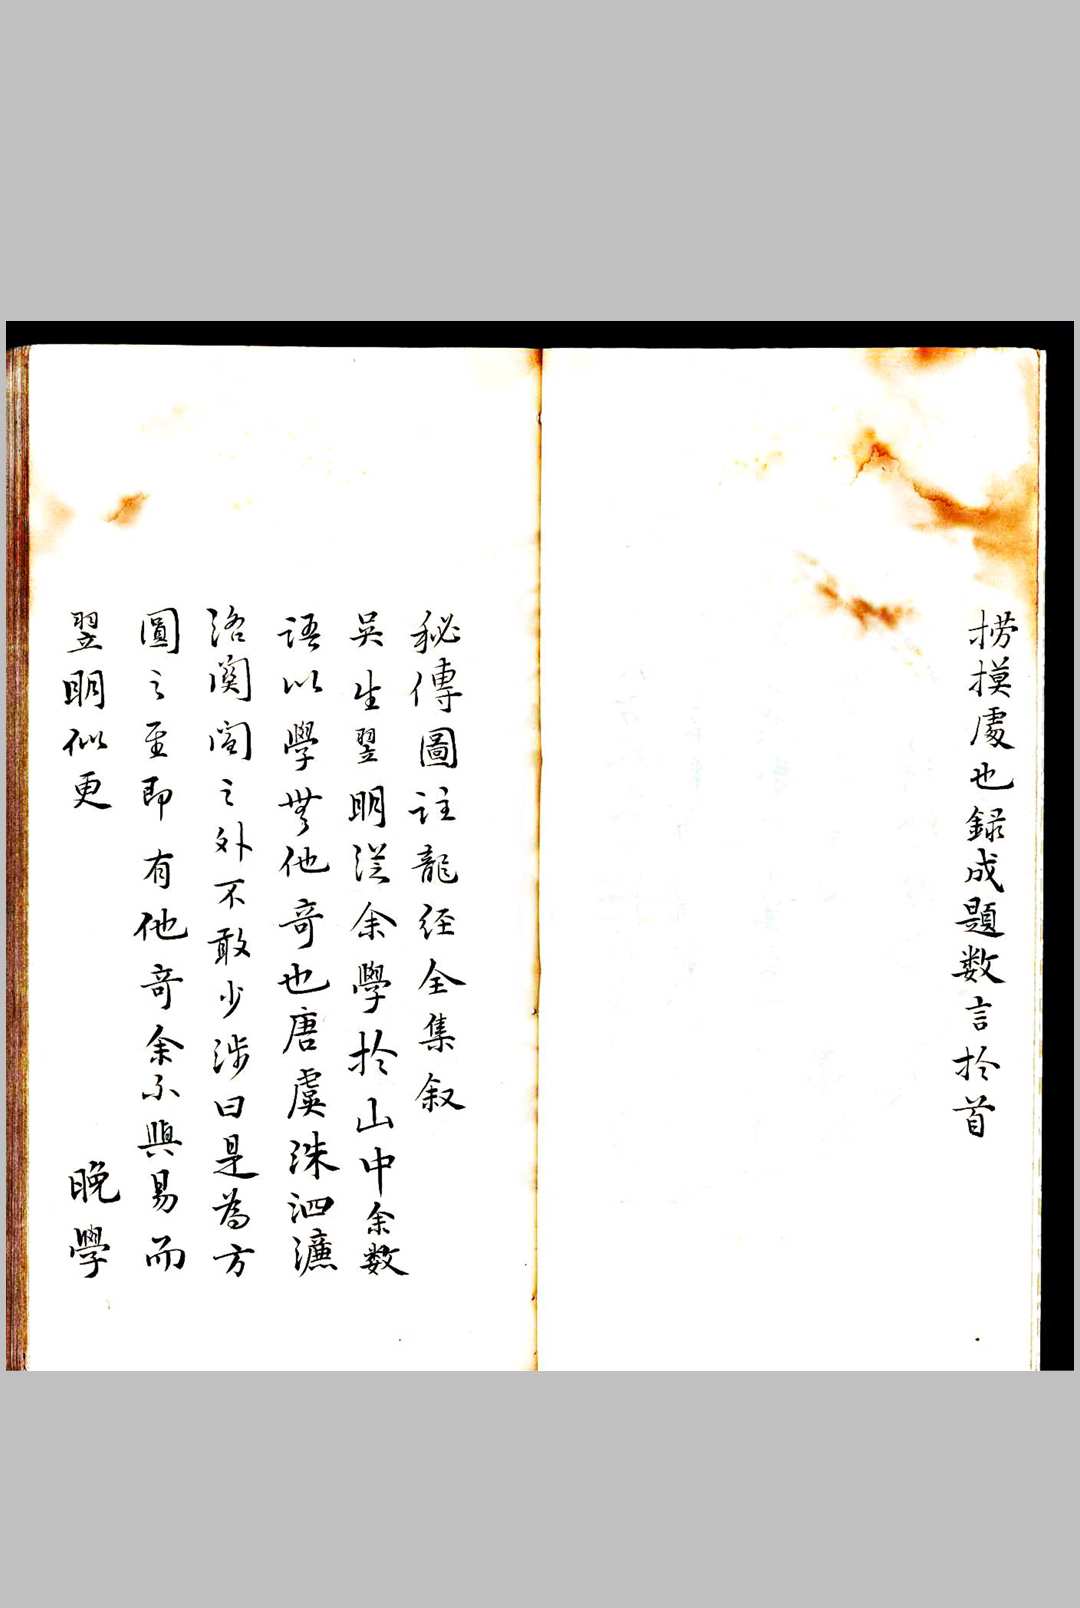 捞摸處也録成題数言扵首
秘傳圖註龍经全集叙
吴生翌明從余學扵山中余数
語以學無他奇也唐虞洙泗濂
洛関閩之外不敢少涉曰是為方
圓之至即有他奇余不與易而
翌明似更
晚學